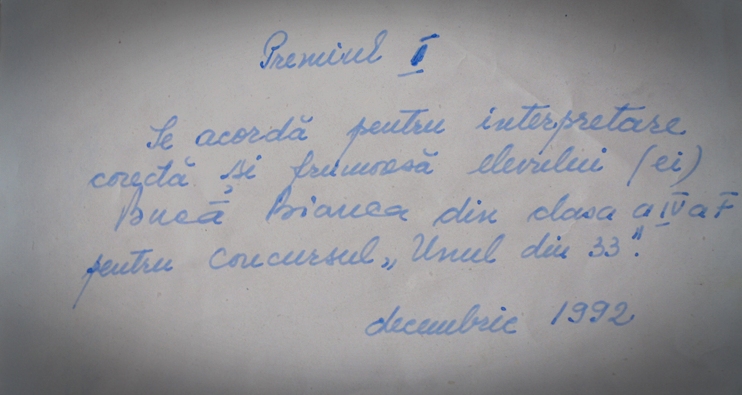 Premiul I
Se acordă pentru interpretare
corectă și frumoasă elevului (ei)
Bucă Bianca din clasa a IV a F
pentru concursul „Unul din 33".
decembrie 1992